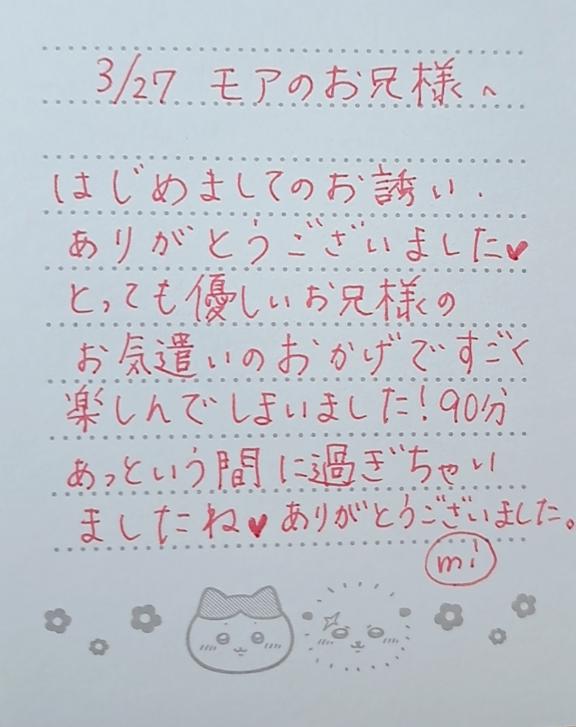 3/27 モアのお兄様へ
はじめましてのお誘い、
ありがとうございました♥
とっても優しいお兄様の
お気遣いのおかげですごく
楽しんでしまいました!90分
あっという間に過ぎちゃい
ましたね♥ありがとうございました。
mi